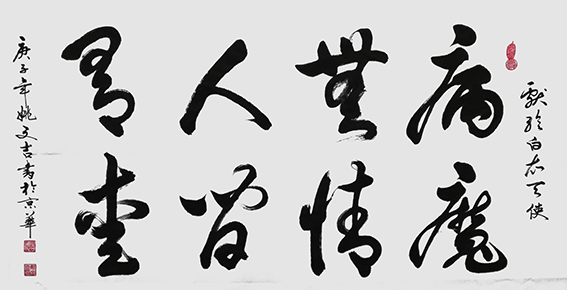 獻給白衣天使
病魔
無情
人間
有愛
庚子年姚文吉書於京華